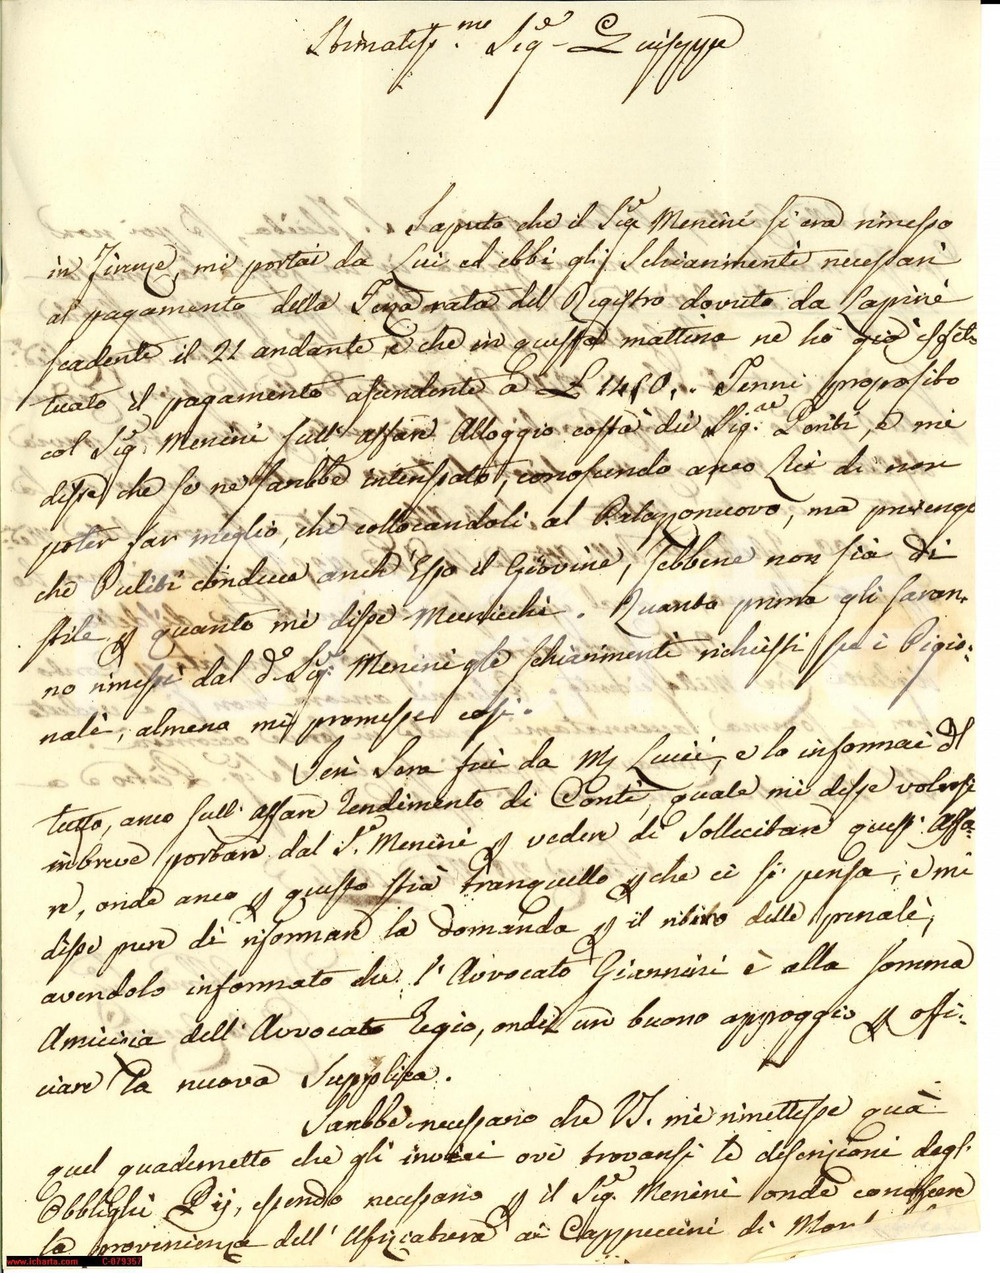 Stimatiss.mo Sig.e Giuseppe
Saputo che il Sig.e Menini si era rimesso
in Firenze, mi portai da Lui ed ebbi gli schiarimenti necessari
al pagamento della Terza rata del Registro dovuto da Lapini
scadente il 21 andante, e che in questa mattina ne hò già effet-
tuato il pagamento ascendente a £
Tenni proposito
col Sig.e Menini sull' affare Alloggio costà dei Sig.re e mi
disse che se ne sarebbe interessato, conoscendo anco Lui di non
poter far meglio, che collocandoli al Palazzonuovo, ma prevengo
che Pulibi conduce anch' Esso il Giovine, sebbene non sia di
stile p quanto mi disse Menicchi. Quanto prima gli saran-
no rimessi dal d.o Sig.e Menini gli schiarimenti richiesti su i Pigio-
nali, almeno mi promesse così.
Jeri Sera fui da Mg Luici, e lo informai di
tutto, anco sull' affare Rendimento di Conti, quale mi disse volersi
in breve portare dal S.e Menini p vedere di Sollecitare quest' Affa-
re, onde anco p questo stia tranquillo p che ci si pensa, e mi
disse pure di riformare la domanda p il ritiro delle penali,
avendolo informato che l' Avvocato Giannini è alla somma
Amicizia dell' Avvocato Regio, onde un buono appoggio p affi-
ciare la nuova Supplica.
Sarebbe necessario che VS. mi rimettesse quà
quel quadernetto che gli inviai ove trovansi le descrizioni degl'
Obblighi Pij, essendo necessario p il Sig.e Menini onde conoscere
la provenienza dell' Ufiziatura ai Cappuccini di
www.icharta.com C-079357